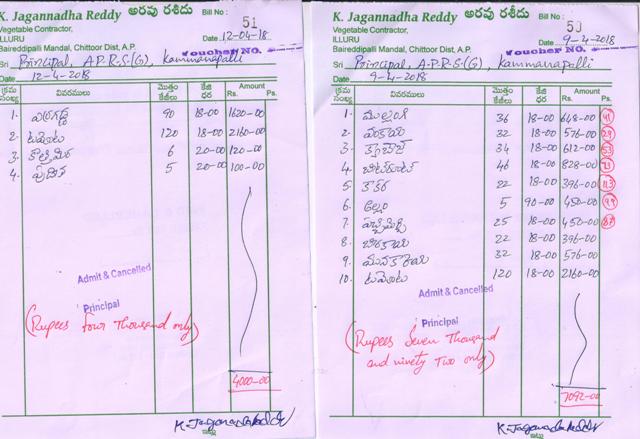 K. Jagannadha Reddy అరవు రశీదు Bill No : 51
Vegetable Contractor,
ILLURU Date 12-04-18
Baireddipalli Mandal, Chittoor Dist, A.P.
Voucher NO.
Sri Principal, A.P.R.S.(G), Kammanapalli
Date 12-4-2018
క్రమ సంఖ్య వివరములు మొత్తం కేజీలు కేజి ధర Amount Rs. Ps.
1. 90 18-00 1620-00
2. టమోటా 120 18-00 2160-00
3. కొత్తిమిర 6 20-00 120-00
4. పుదిన 5 20-00 100-00
Admit & Cancelled
Principal
(Rupees four Thousand only)
4000-00
K. Jagannadha Reddy
K. Jagannadha Reddy అరవు రశీదు Bill No : 50
Vegetable Contractor,
ILLURU Date 9-4-2018
Baireddipalli Mandal, Chittoor Dist, A.P.
Voucher NO.
Sri Principal, A.P.R.S.(G), Kammanapalli
Date 9-4-2018
క్రమ సంఖ్య వివరములు మొత్తం కేజీలు కేజి ధర Amount Rs. Ps.
1. ముల్లంగి 36 18-00 648-00
2. వంకాయ 32 18-00 576-00
3. క్యాబేజి 34 18-00 612-00
4. బీట్‌రూట్ 46 18-00 828-00
5. కాకర 22 18-00 396-00
6. అల్లం 5 90-00 450-00
7. పచ్చిమిర్చి 25 18-00 450-00
8. బీరకాయ 22 18-00 396-00
9. మునకాయ 32 18-00 576-00
10. టమోటా 120 18-00 2160-00
Admit & Cancelled
Principal
(Rupees Seven Thousand
and ninety Two only)
7092-00
K. Jagannadha Reddy